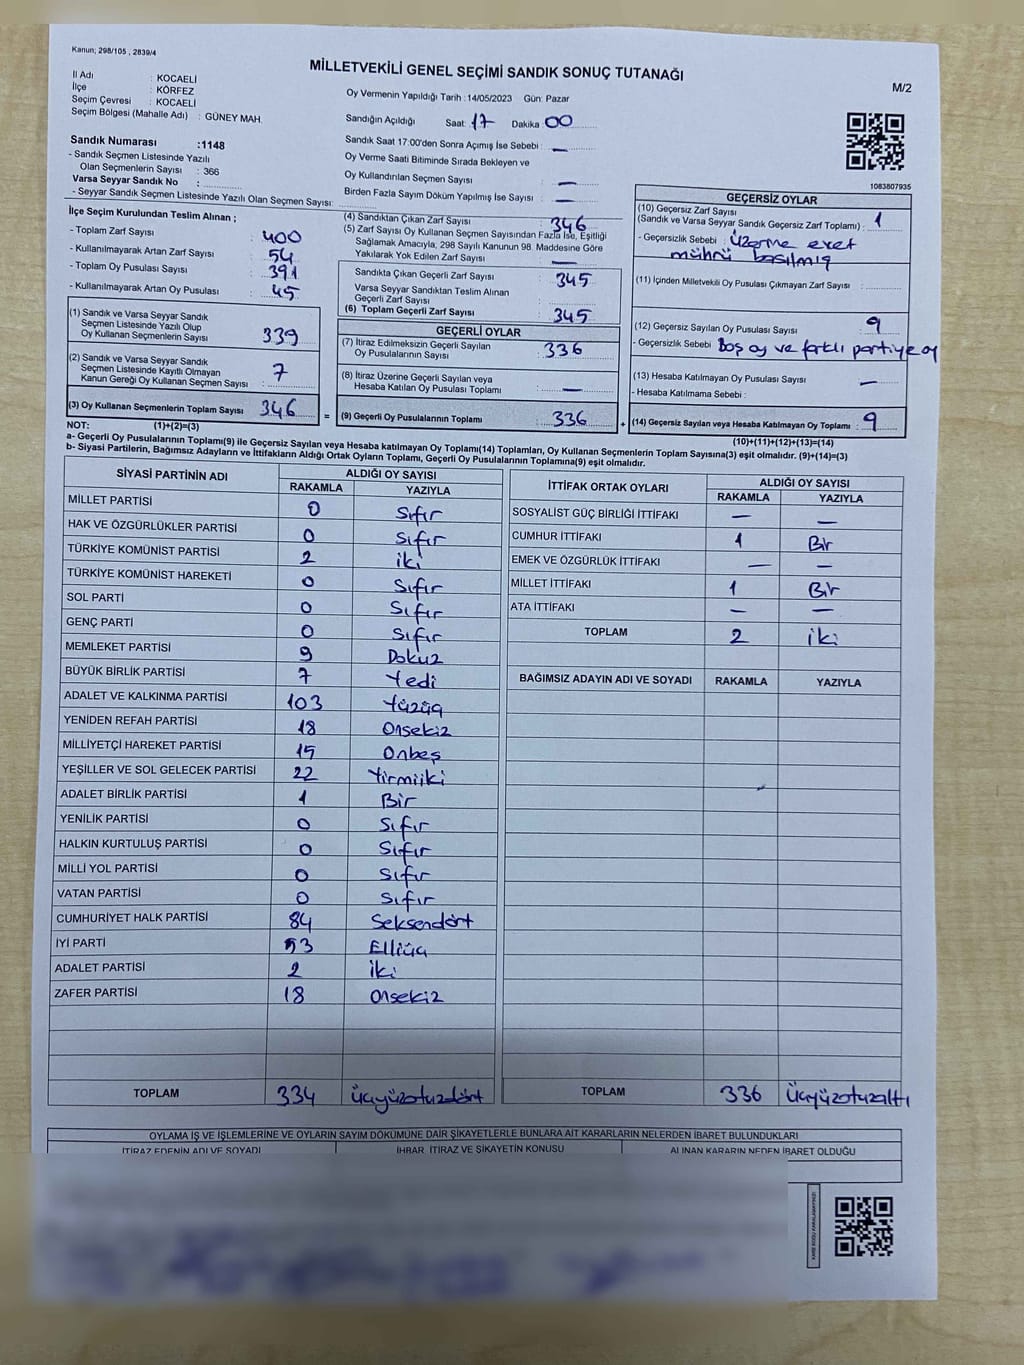 Kanun; 298/105 , 2839/4
MİLLETVEKİLİ GENEL SEÇİMİ SANDIK SONUÇ TUTANAĞI
M/2
İl Adı : KOCAELİ
İlçe : KÖRFEZ
Seçim Çevresi : KOCAELİ
Seçim Bölgesi (Mahalle Adı) : GÜNEY MAH.
Sandık Numarası :1148
- Sandık Seçmen Listesinde Yazılı
Olan Seçmenlerin Sayısı : 366
Varsa Seyyar Sandık No :
- Seyyar Sandık Seçmen Listesinde Yazılı Olan Seçmen Sayısı:
Oy Vermenin Yapıldığı Tarih : 14/05/2023 Gün: Pazar
Sandığın Açıldığı Saat: 17 Dakika : 00
Sandık Saat 17:00'den Sonra Açımış İse Sebebi : —
Oy Verme Saati Bitiminde Sırada Bekleyen ve
Oy Kullandırılan Seçmen Sayısı : —
Birden Fazla Sayım Döküm Yapılmış İse Sayısı : —
1083807935
İlçe Seçim Kurulundan Teslim Alınan ;
- Toplam Zarf Sayısı : 400
- Kullanılmayarak Artan Zarf Sayısı : 54
- Toplam Oy Pusulası Sayısı : 391
- Kullanılmayarak Artan Oy Pusulası : 45
(1) Sandık ve Varsa Seyyar Sandık
Seçmen Listesinde Yazılı Olup
Oy Kullanan Seçmenlerin Sayısı : 339
(2) Sandık ve Varsa Seyyar Sandık
Seçmen Listesinde Kayıtlı Olmayan
Kanun Gereği Oy Kullanan Seçmen Sayısı : 7
(3) Oy Kullanan Seçmenlerin Toplam Sayısı 346
(4) Sandıktan Çıkan Zarf Sayısı : 346
(5) Zarf Sayısı Oy Kullanan Seçmen Sayısından Fazla İse, Eşitliği
Sağlamak Amacıyla, 298 Sayılı Kanunun 98. Maddesine Göre
Yakılarak Yok Edilen Zarf Sayısı : —
Sandıkta Çıkan Geçerli Zarf Sayısı : 345
Varsa Seyyar Sandıktan Teslim Alınan
Geçerli Zarf Sayısı :
(6) Toplam Geçerli Zarf Sayısı : 345
GEÇERLİ OYLAR
(7) İtiraz Edilmeksizin Geçerli Sayılan
Oy Pusulalarının Sayısı : 336
(8) İtiraz Üzerine Geçerli Sayılan veya
Hesaba Katılan Oy Pusulası Toplamı : —
= (9) Geçerli Oy Pusulalarının Toplamı : 336
GEÇERSİZ OYLAR
(10) Geçersiz Zarf Sayısı
(Sandık ve Varsa Seyyar Sandık Geçersiz Zarf Toplamı) : 1
- Geçersizlik Sebebi : üzerine evet
mührü basılmış
(11) İçinden Milletvekili Oy Pusulası Çıkmayan Zarf Sayısı :
(12) Geçersiz Sayılan Oy Pusulası Sayısı : 9
- Geçersizlik Sebebi Boş oy ve farklı partiye oy
(13) Hesaba Katılmayan Oy Pusulası Sayısı : —
- Hesaba Katılmama Sebebi :
+ (14) Geçersiz Sayılan veya Hesaba Katılmayan Oy Toplamı : 9
NOT: (1)+(2)=(3)
(10)+(11)+(12)+(13)=(14)
a- Geçerli Oy Pusulalarının Toplamı(9) ile Geçersiz Sayılan veya Hesaba katılmayan Oy Toplamı(14) Toplamları, Oy Kullanan Seçmenlerin Toplam Sayısına(3) eşit olmalıdır. (9)+(14)=(3)
b- Siyasi Partilerin, Bağımsız Adayların ve İttifakların Aldığı Ortak Oyların Toplamı, Geçerli Oy Pusulalarının Toplamına(9) eşit olmalıdır.
SİYASİ PARTİNİN ADI ALDIĞI OY SAYISI
RAKAMLA YAZIYLA
MİLLET PARTİSİ 0 Sıfır
HAK VE ÖZGÜRLÜKLER PARTİSİ 0 Sıfır
TÜRKİYE KOMÜNİST PARTİSİ 2 iki
TÜRKİYE KOMÜNİST HAREKETİ 0 Sıfır
SOL PARTİ 0 Sıfır
GENÇ PARTİ 0 Sıfır
MEMLEKET PARTİSİ 9 Dokuz
BÜYÜK BİRLİK PARTİSİ 7 Yedi
ADALET VE KALKINMA PARTİSİ 103 Yüzüç
YENİDEN REFAH PARTİSİ 18 Onsekiz
MİLLİYETÇİ HAREKET PARTİSİ 15 Onbeş
YEŞİLLER VE SOL GELECEK PARTİSİ 22 Yirmiiki
ADALET BİRLİK PARTİSİ 1 Bir
YENİLİK PARTİSİ 0 Sıfır
HALKIN KURTULUŞ PARTİSİ 0 Sıfır
MİLLİ YOL PARTİSİ 0 Sıfır
VATAN PARTİSİ 0 Sıfır
CUMHURİYET HALK PARTİSİ 84 Seksendört
İYİ PARTİ 53 Elliüç
ADALET PARTİSİ 2 iki
ZAFER PARTİSİ 18 Onsekiz
TOPLAM 334 üçyüzotuzdört
İTTİFAK ORTAK OYLARI ALDIĞI OY SAYISI
RAKAMLA YAZIYLA
SOSYALİST GÜÇ BİRLİĞİ İTTİFAKI — —
CUMHUR İTTİFAKI 1 Bir
EMEK VE ÖZGÜRLÜK İTTİFAKI — —
MİLLET İTTİFAKI 1 Bir
ATA İTTİFAKI — —
TOPLAM 2 iki
BAĞIMSIZ ADAYIN ADI VE SOYADI RAKAMLA YAZIYLA
TOPLAM 336 üçyüzotuzaltı
OYLAMA İŞ VE İŞLEMLERİNE VE OYLARIN SAYIM DÖKÜMÜNE DAİR ŞİKAYETLERLE BUNLARA AİT KARARLARIN NELERDEN İBARET BULUNDUKLARI
İTİRAZ EDENİN ADI VE SOYADI İHBAR, İTİRAZ VE ŞİKAYETİN KONUSU ALINAN KARARIN NEDEN İBARET OLDUĞU